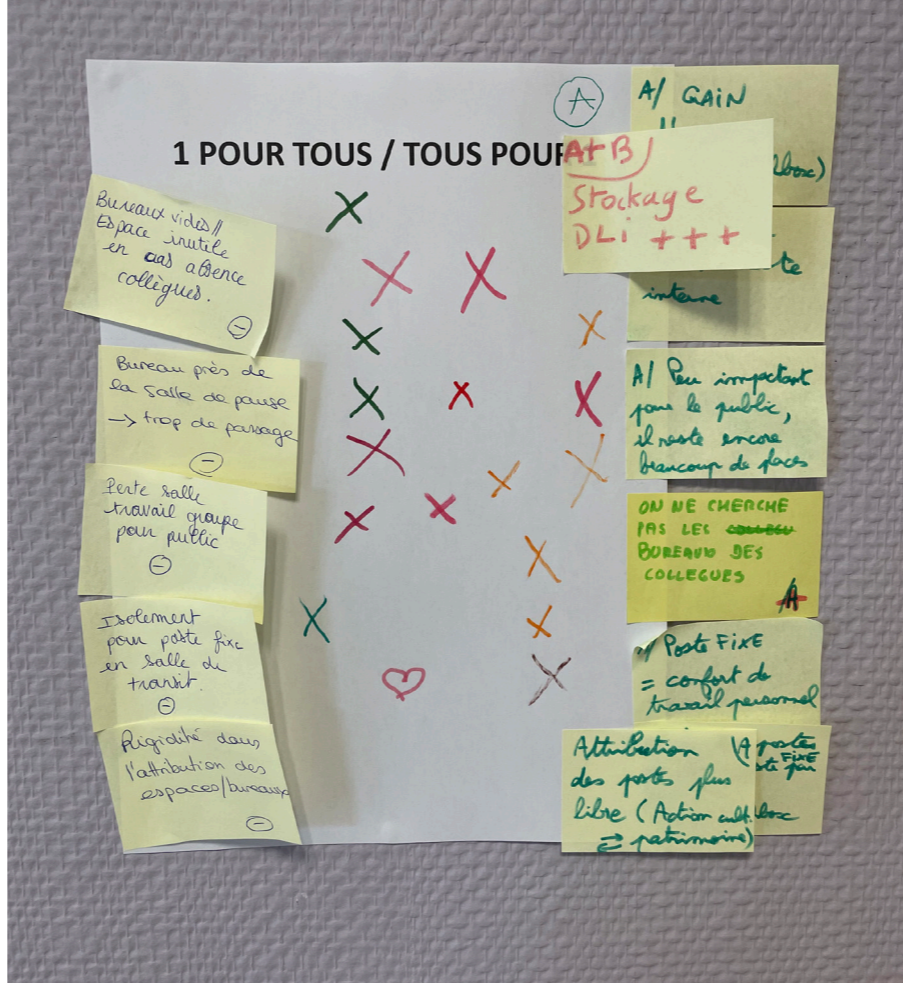 A
1 POUR TOUS / TOUS POUR
Bureaux vides//
Espace inutile
en cas absence
collègues.
-
Bureau près de
la salle de pause
→ trop de passage
-
Perte salle
travail groupe
pour public
-
Isolement
pour poste fixe
en salle de
transit.
-
Rigidité dans
l'attribution des
espaces/bureaux
-
A/ GAIN
A+B
Stockage
DLi +++
interne
A/ Peu important
pour le public,
il reste encore
beaucoup de places
ON NE CHERCHE
PAS LES
BUREAUX DES
COLLEGUES
A
// Poste FIXE
= confort de
travail personnel
Attribution
des postes plus
libre (Action cult.
⇄ patrimoine)
A postes
FIXE